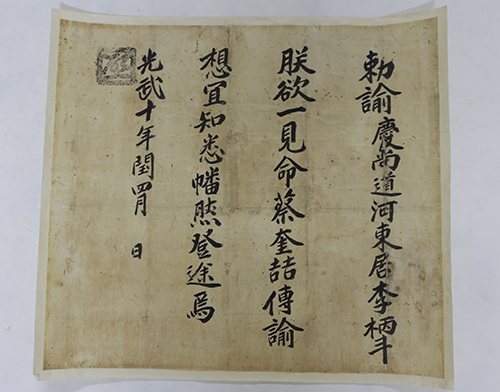 勅諭慶尙道河東居李柄斗
朕欲一見命蔡奎喆傳諭
想宜知悉幡然登途焉
光武十年閏四月 日